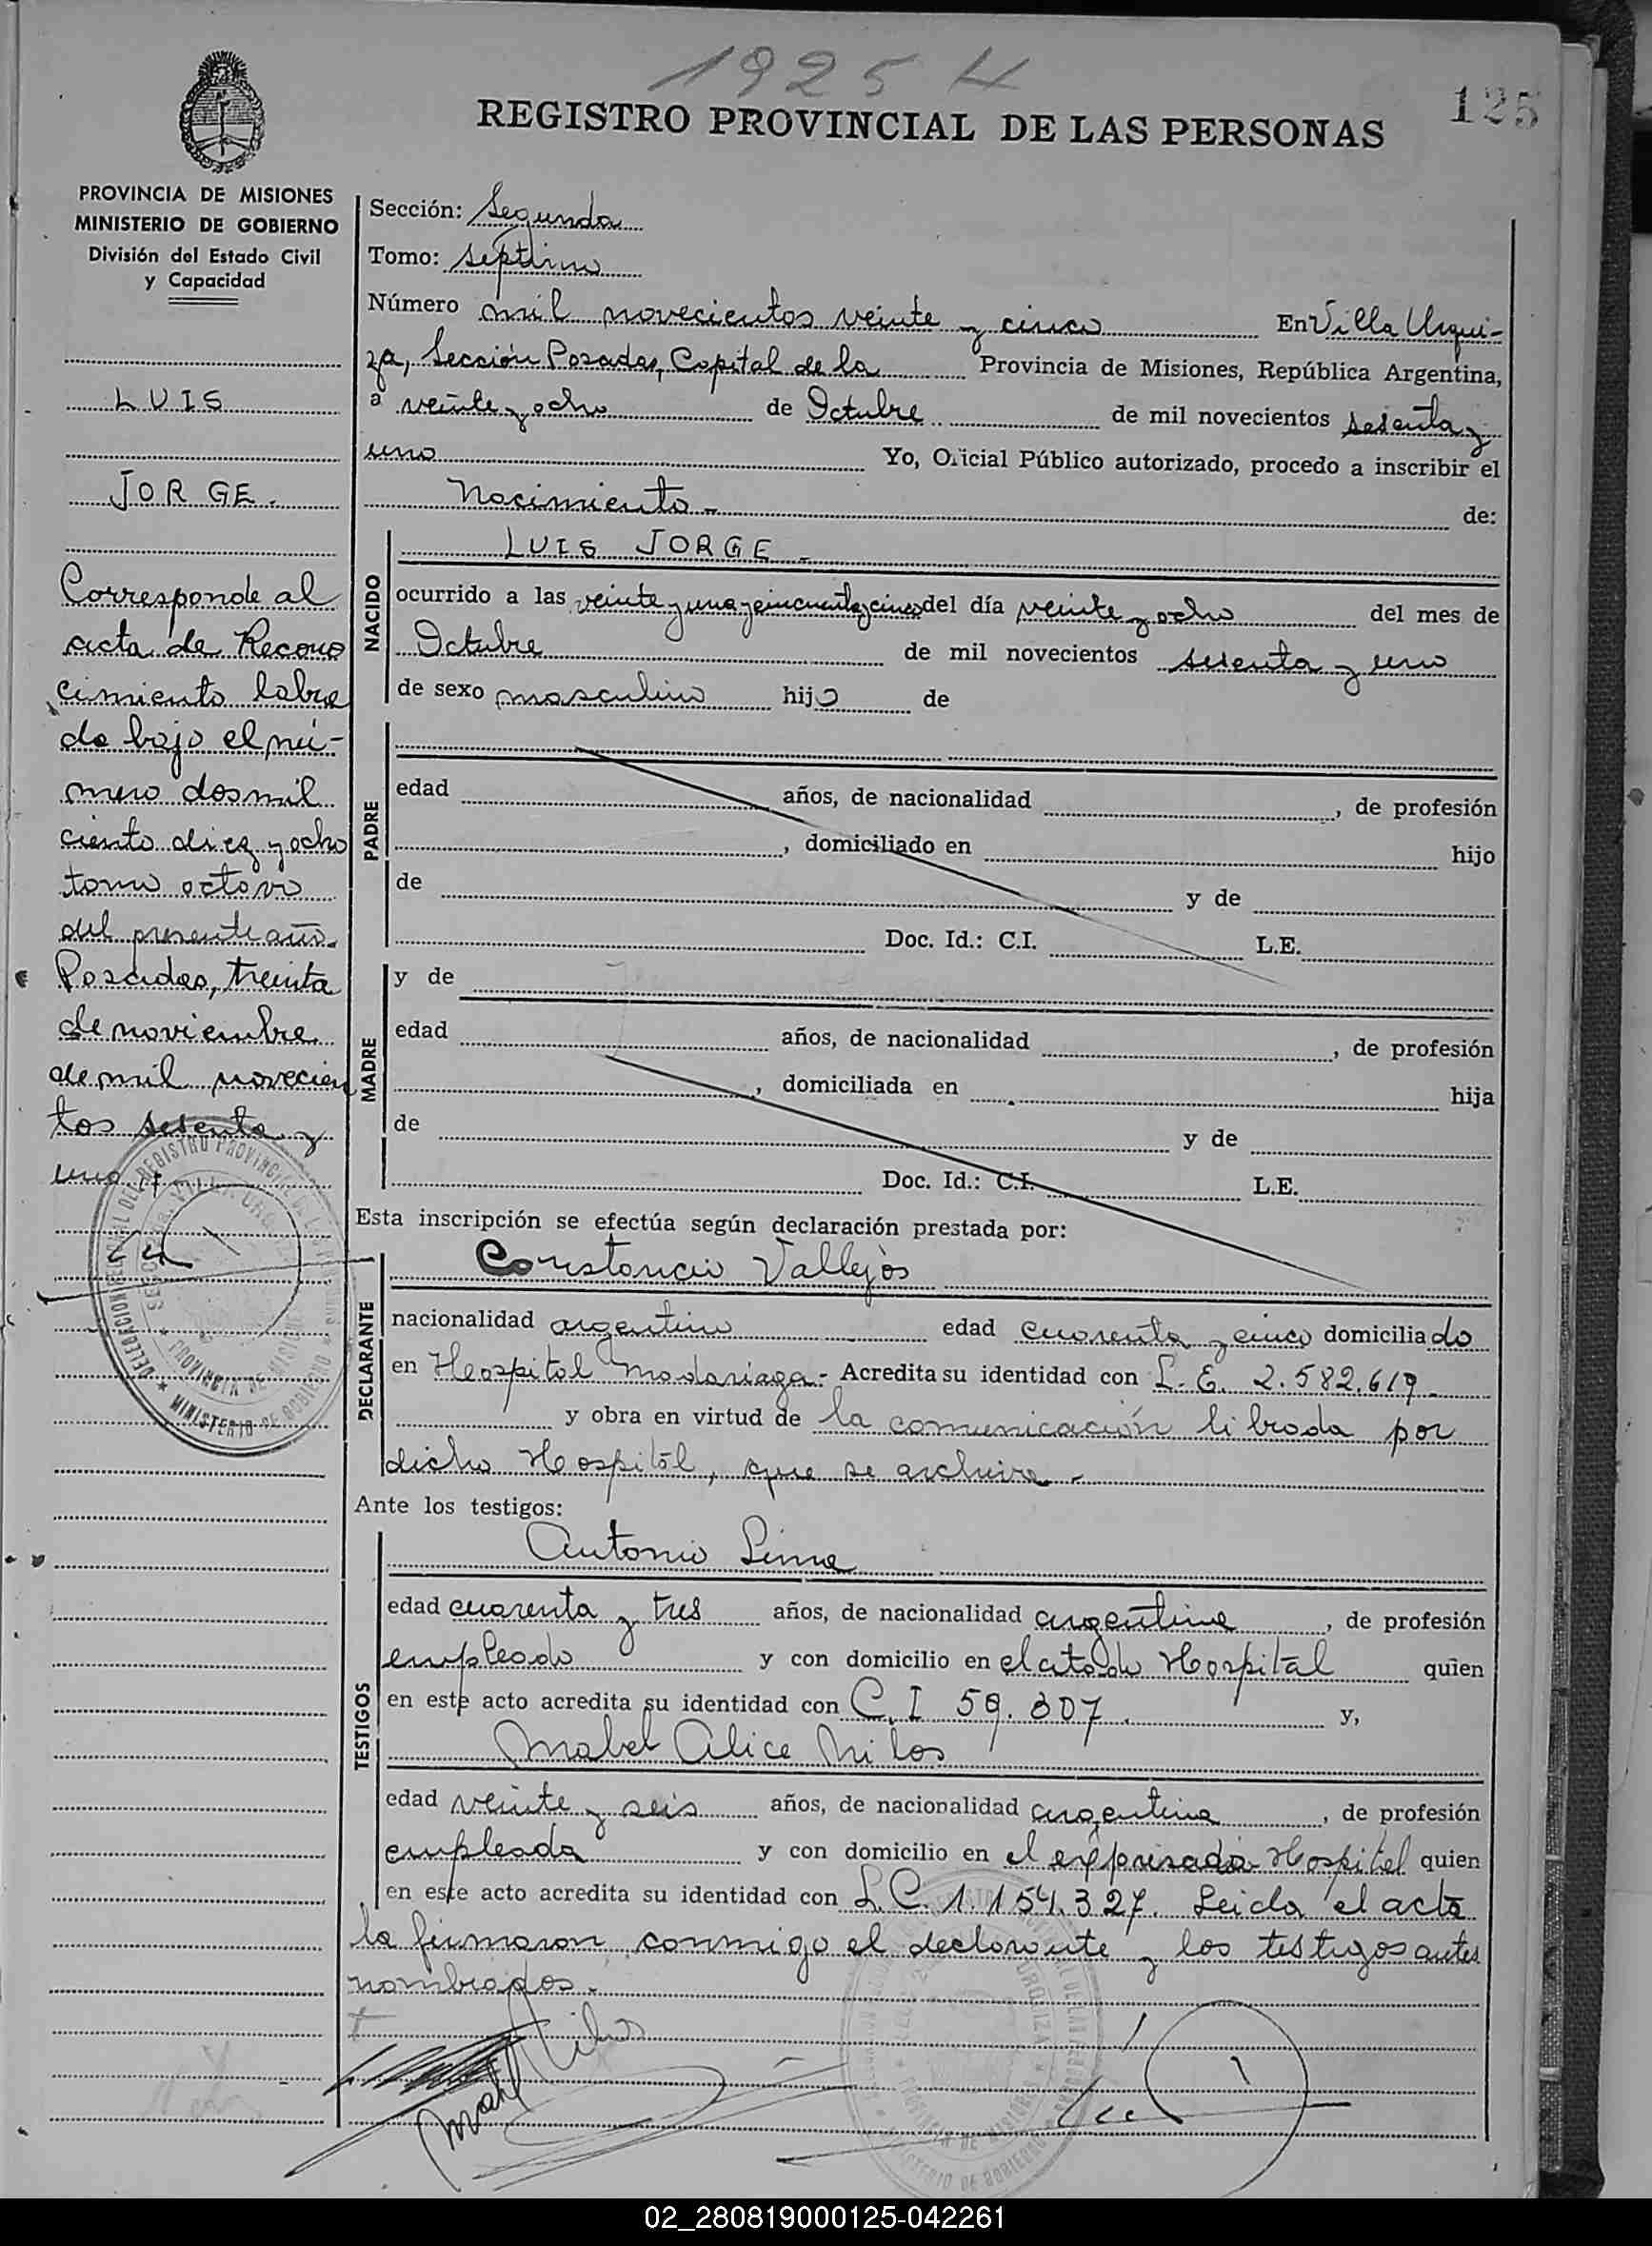 1925 H
125
REGISTRO PROVINCIAL DE LAS PERSONAS
PROVINCIA DE MISIONES
MINISTERIO DE GOBIERNO
División del Estado Civil
y Capacidad
LUIS
JORGE.
Corresponde al
acta de Recono
cimiento labra
do bajo el nú-
mero dos mil
ciento diez y ocho
tomo octavo
del presente año.
Posadas, treinta
de noviembre
de mil novecien
tos sesenta y
uno
Sección: Segunda
Tomo: septimo
Número mil novecientos veinte y cinco En Villa Urqui-
za, Sección Posadas, Capital de la Provincia de Misiones, República Argentina,
a veinte y ocho de Octubre de mil novecientos sesenta y
uno Yo, Oficial Público autorizado, procedo a inscribir el
Nacimiento de:
NACIDO
LUIS JORGE.
ocurrido a las veinte y una y cincuenta y cinco del día veinte y ocho del mes de
Octubre de mil novecientos sesenta y uno
de sexo masculino hijo de
PADRE
edad años, de nacionalidad , de profesión
, domiciliado en hijo
de y de
Doc. Id.: C.I. L.E.
MADRE
y de
edad años, de nacionalidad , de profesión
, domiciliada en hija
de y de
Doc. Id.: C.I. L.E.
Esta inscripción se efectúa según declaración prestada por:
DECLARANTE
Constancio Vallejos
nacionalidad argentino edad cuarenta y cinco domiciliado
en Hospital Madariaga.- Acredita su identidad con L.E. 2.582.619.
y obra en virtud de la comunicación librada por
dicho Hospital, que se archiva.-
Ante los testigos:
TESTIGOS
Antonio Lima
edad cuarenta y tres años, de nacionalidad argentina, de profesión
empleado y con domicilio en el citado Hospital quien
en este acto acredita su identidad con C.I 59.807. y,
Mabel Alice Milos
edad veinte y seis años, de nacionalidad argentina, de profesión
empleada y con domicilio en el expresado Hospital quien
en este acto acredita su identidad con L.C. 1.154.327. Leida el acta
la firmaron conmigo el declarante y los testigos antes
nombrados.
02_280819000125-042261